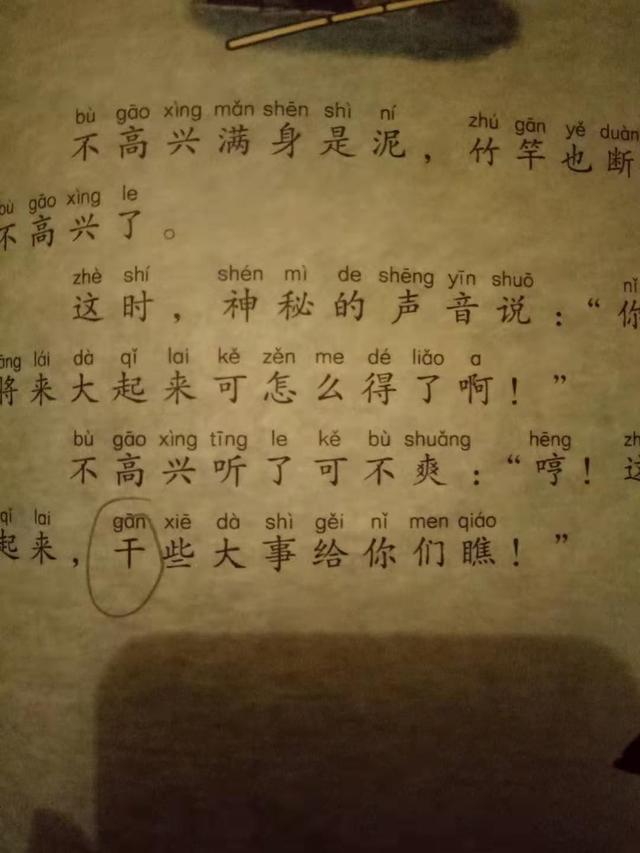 bù gāo xìng mǎn shēn shì ní zhú gān yě duàn
不高兴满身是泥，竹竿也断
bù gāo xìng le
不高兴了。
zhè shí shén mì de shēng yīn shuō nǐ
这时，神秘的声音说：“你
lái dà qǐ lai kě zěn me dé liǎo a
将来大起来可怎么得了啊！”
bù gāo xìng tīng le kě bù shuǎng hēng
不高兴听了可不爽：“哼！这
qǐ lai gān xiē dà shì gěi nǐ men qiáo
起来，干些大事给你们瞧！”